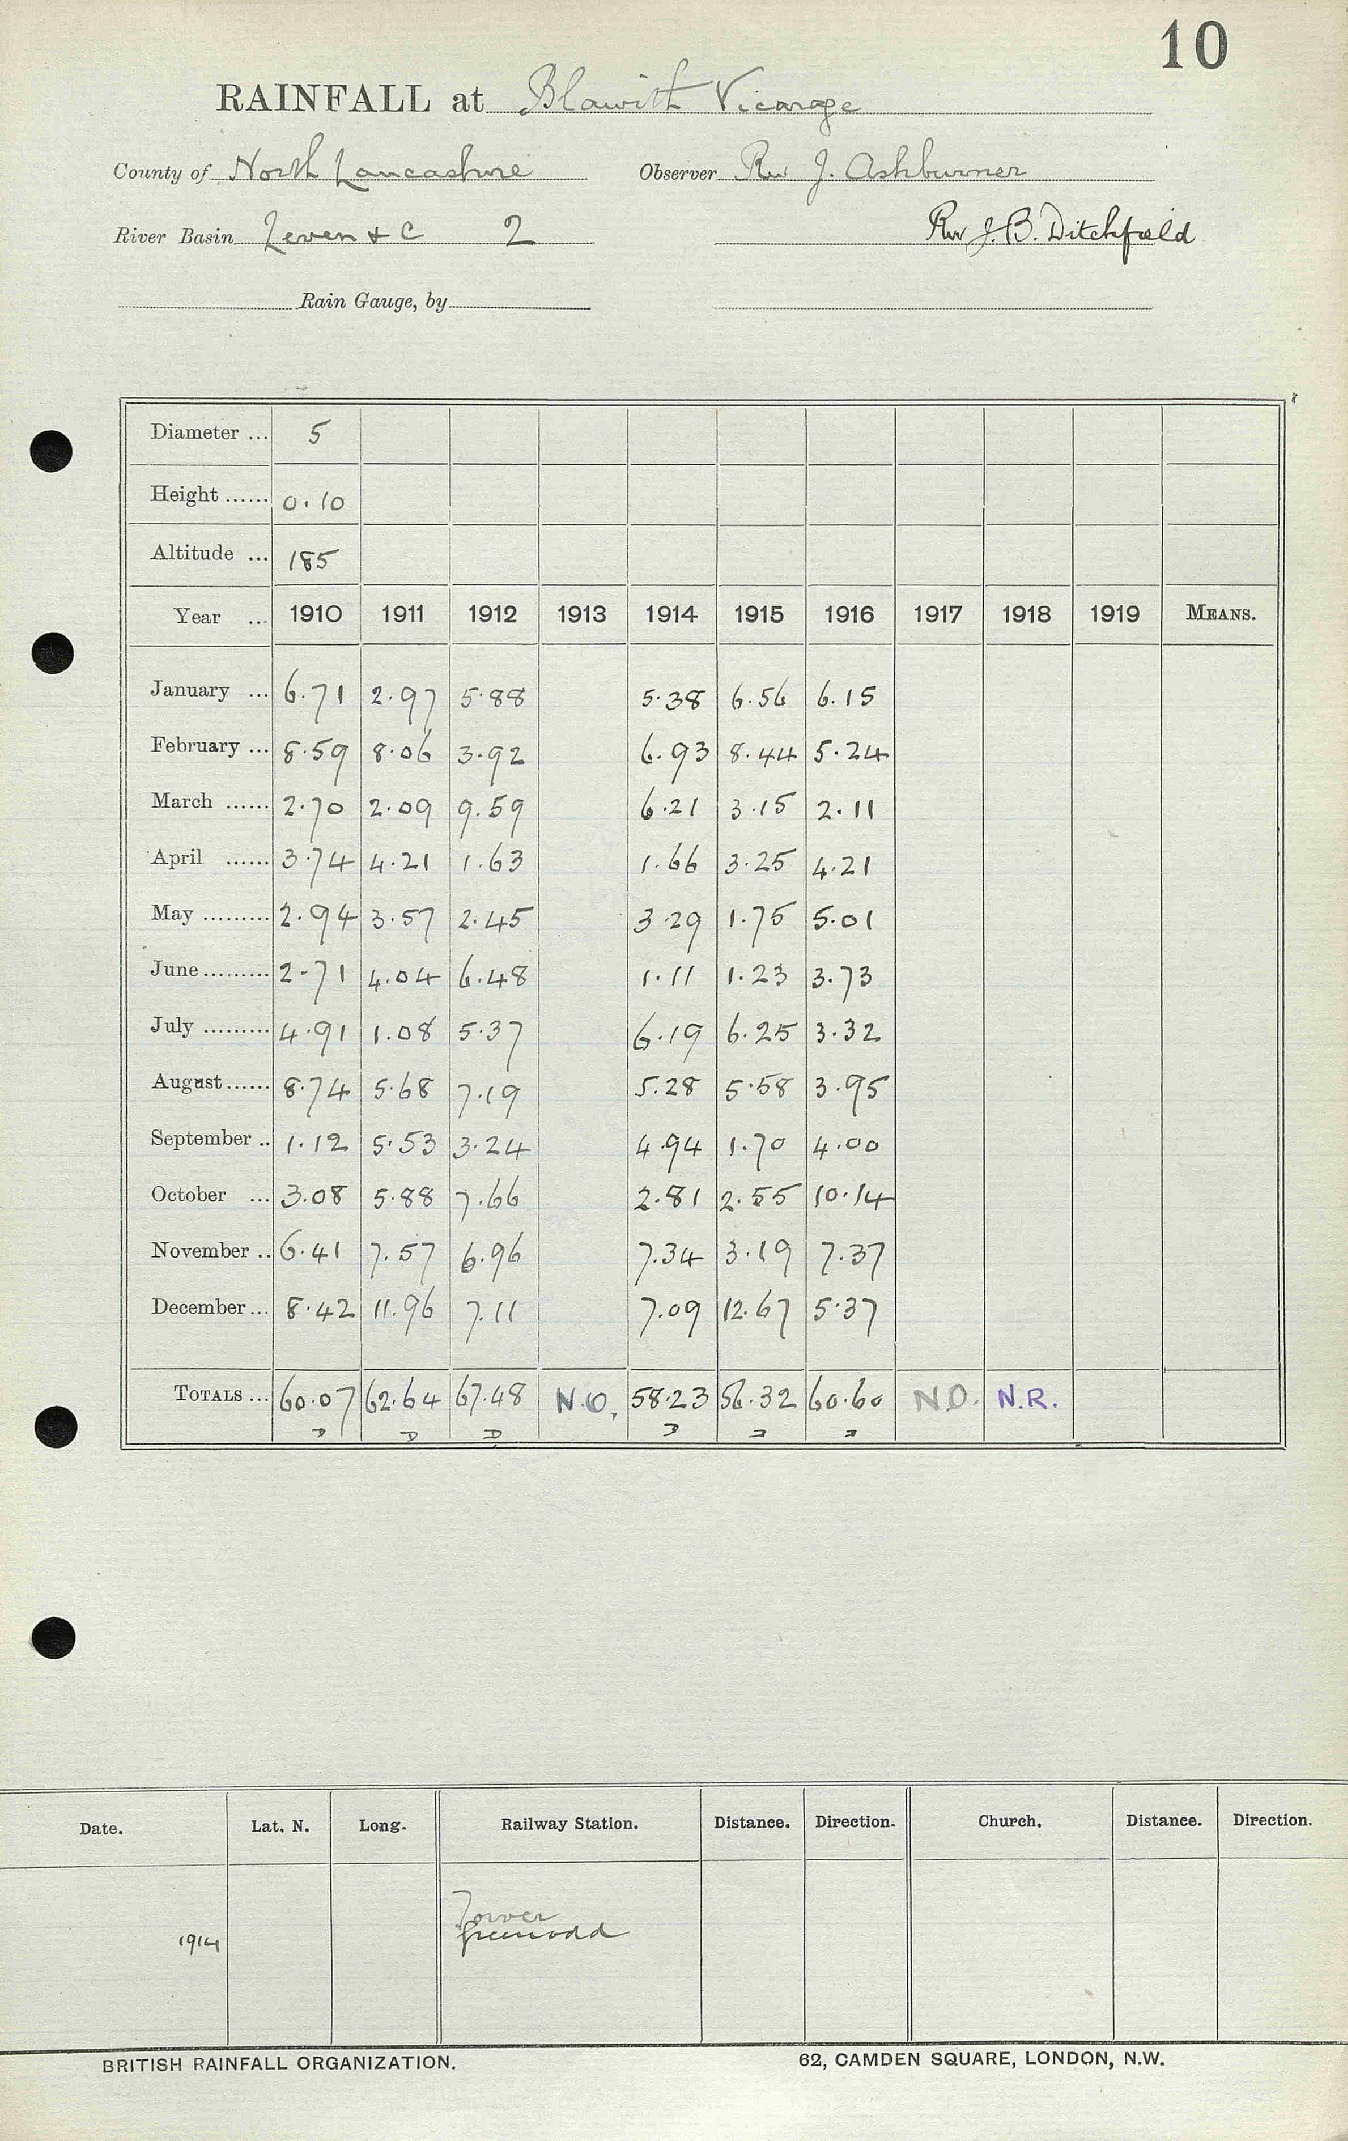 10
RAINFALL at Blawith Vicarage
County of North Lancashire Observer Rev J. Ashburner
River Basin Leven & C 2 Rev J. B. Ditchfield
Rain Gauge, by
Diameter ... 5
Height ...... 0.10
Altitude ... 185
Year ... 1910 1911 1912 1913 1914 1915 1916 1917 1918 1919 MEANS.
January ... 6.71 2.97 5.88 5.38 6.56 6.15
February ... 8.59 8.06 3.92 6.93 8.44 5.24
March ...... 2.70 2.09 9.59 6.21 3.15 2.11
April ...... 3.74 4.21 1.63 1.66 3.25 4.21
May ......... 2.94 3.57 2.45 3.29 1.75 5.01
June ......... 2.71 4.04 6.48 1.11 1.23 3.73
July ......... 4.91 1.08 5.37 6.19 6.25 3.32
August ...... 8.74 5.68 7.19 5.28 5.58 3.95
September .. 1.12 5.53 3.24 4.94 1.70 4.00
October ... 3.08 5.88 7.66 2.81 2.55 10.14
November .. 6.41 7.57 6.96 7.34 3.19 7.37
December ... 8.42 11.96 7.11 7.09 12.67 5.37
TOTALS ... 60.07 62.64 67.48 N.O. 58.23 56.32 60.60 N.O. N.R.
Date. Lat. N. Long. Railway Station. Distance. Direction. Church. Distance. Direction.
Torver
1914 Greenodd
BRITISH RAINFALL ORGANIZATION. 62, CAMDEN SQUARE, LONDON, N.W.